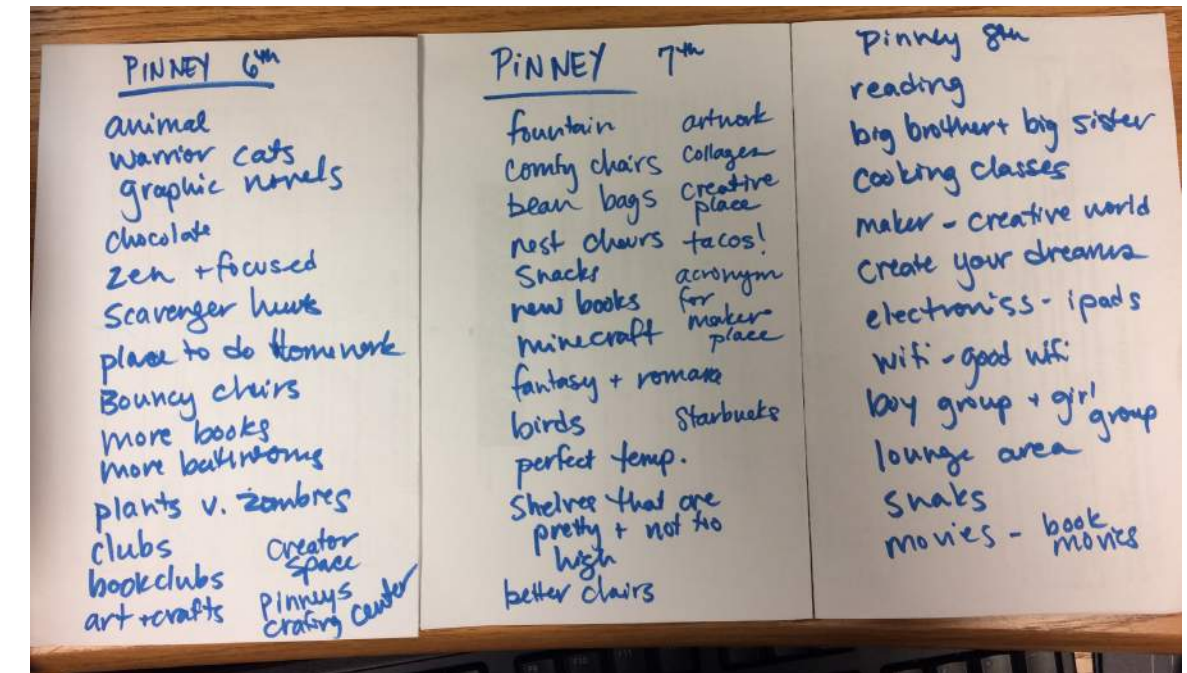 PINNEY 6th
animal
warrior cats
graphic novels
chocolate
zen + focused
Scavenger hunt
place to do Homework
Bouncy chairs
more books
more bathrooms
plants v. zombies
clubs
bookclubs
art + crafts
creator
space
Pinneys
crafting center
PINNEY 7th
fountain
comfy chairs
bean bags
nest chairs
Snacks
new books
minecraft
fantasy + romance
birds
perfect temp.
Shelves that are
pretty + not too
high
better chairs
artwork
collages
creative
place
tacos!
acronym
for
maker
place
Starbucks
Pinney 8th
reading
big brother + big sister
cooking classes
maker - creative world
create your dreams
electroniss - ipads
wifi - good wifi
boy group + girl
group
lounge area
snaks
movies - book
movies
F9
F10
F11